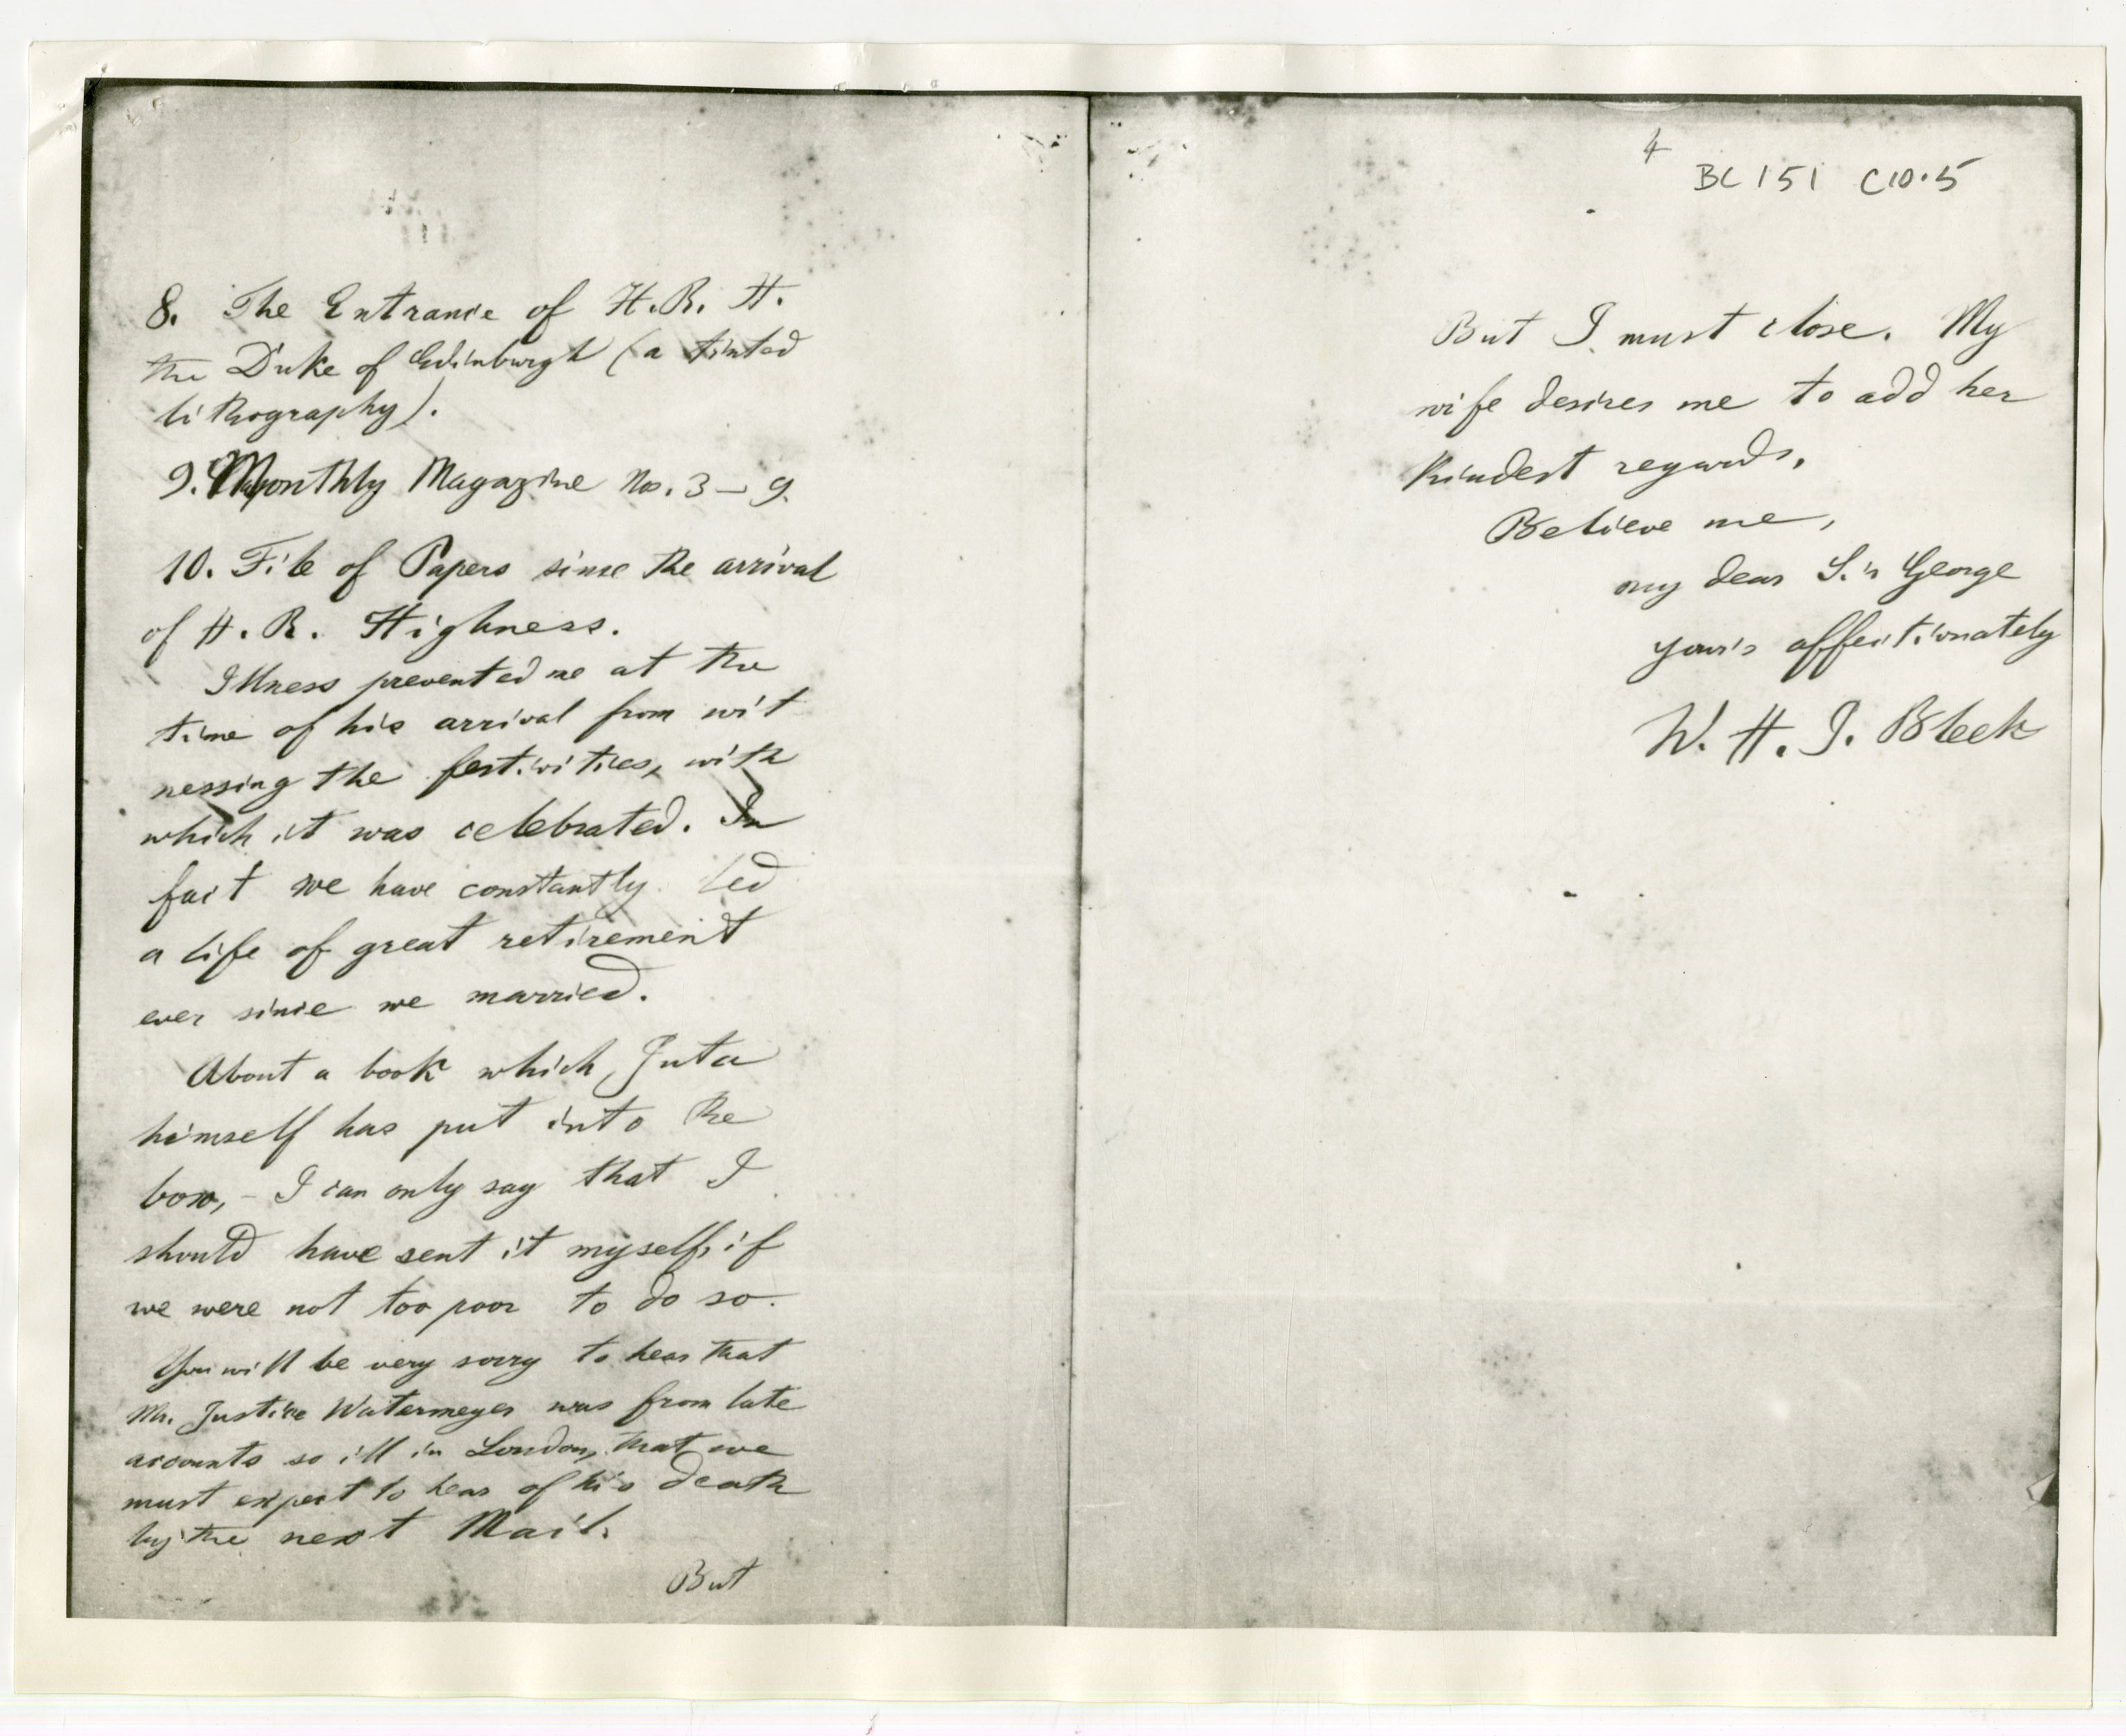 8. The Entrance of H. R. H.
the Duke of Edinburgh (a tinted
lithography).
9. Monthly Magazine No. 3 – 9.
10. File of Papers since the arrival
of H. R. Highness.
Illness prevented me at the
time of his arrival from wit
nessing the festivities, with
which it was celebrated. In
fact we have constantly led
a life of great retirement
ever since we married.
About a book which Juta
himself has put into the
box, – I can only say that I
should have sent it myself, if
we were not too poor to do so.
You will be very sorry to hear that
Mr. Justice Watermeyer was from late
accounts so ill in London, that we
must expect to hear of his death
by the next Mail.
But
4
BC 151 C10.5
But I must close. My
wife desires me to add her
kindest regards,
Believe me,
my dear Sir George
yours affectionately
W. H. I. Bleek